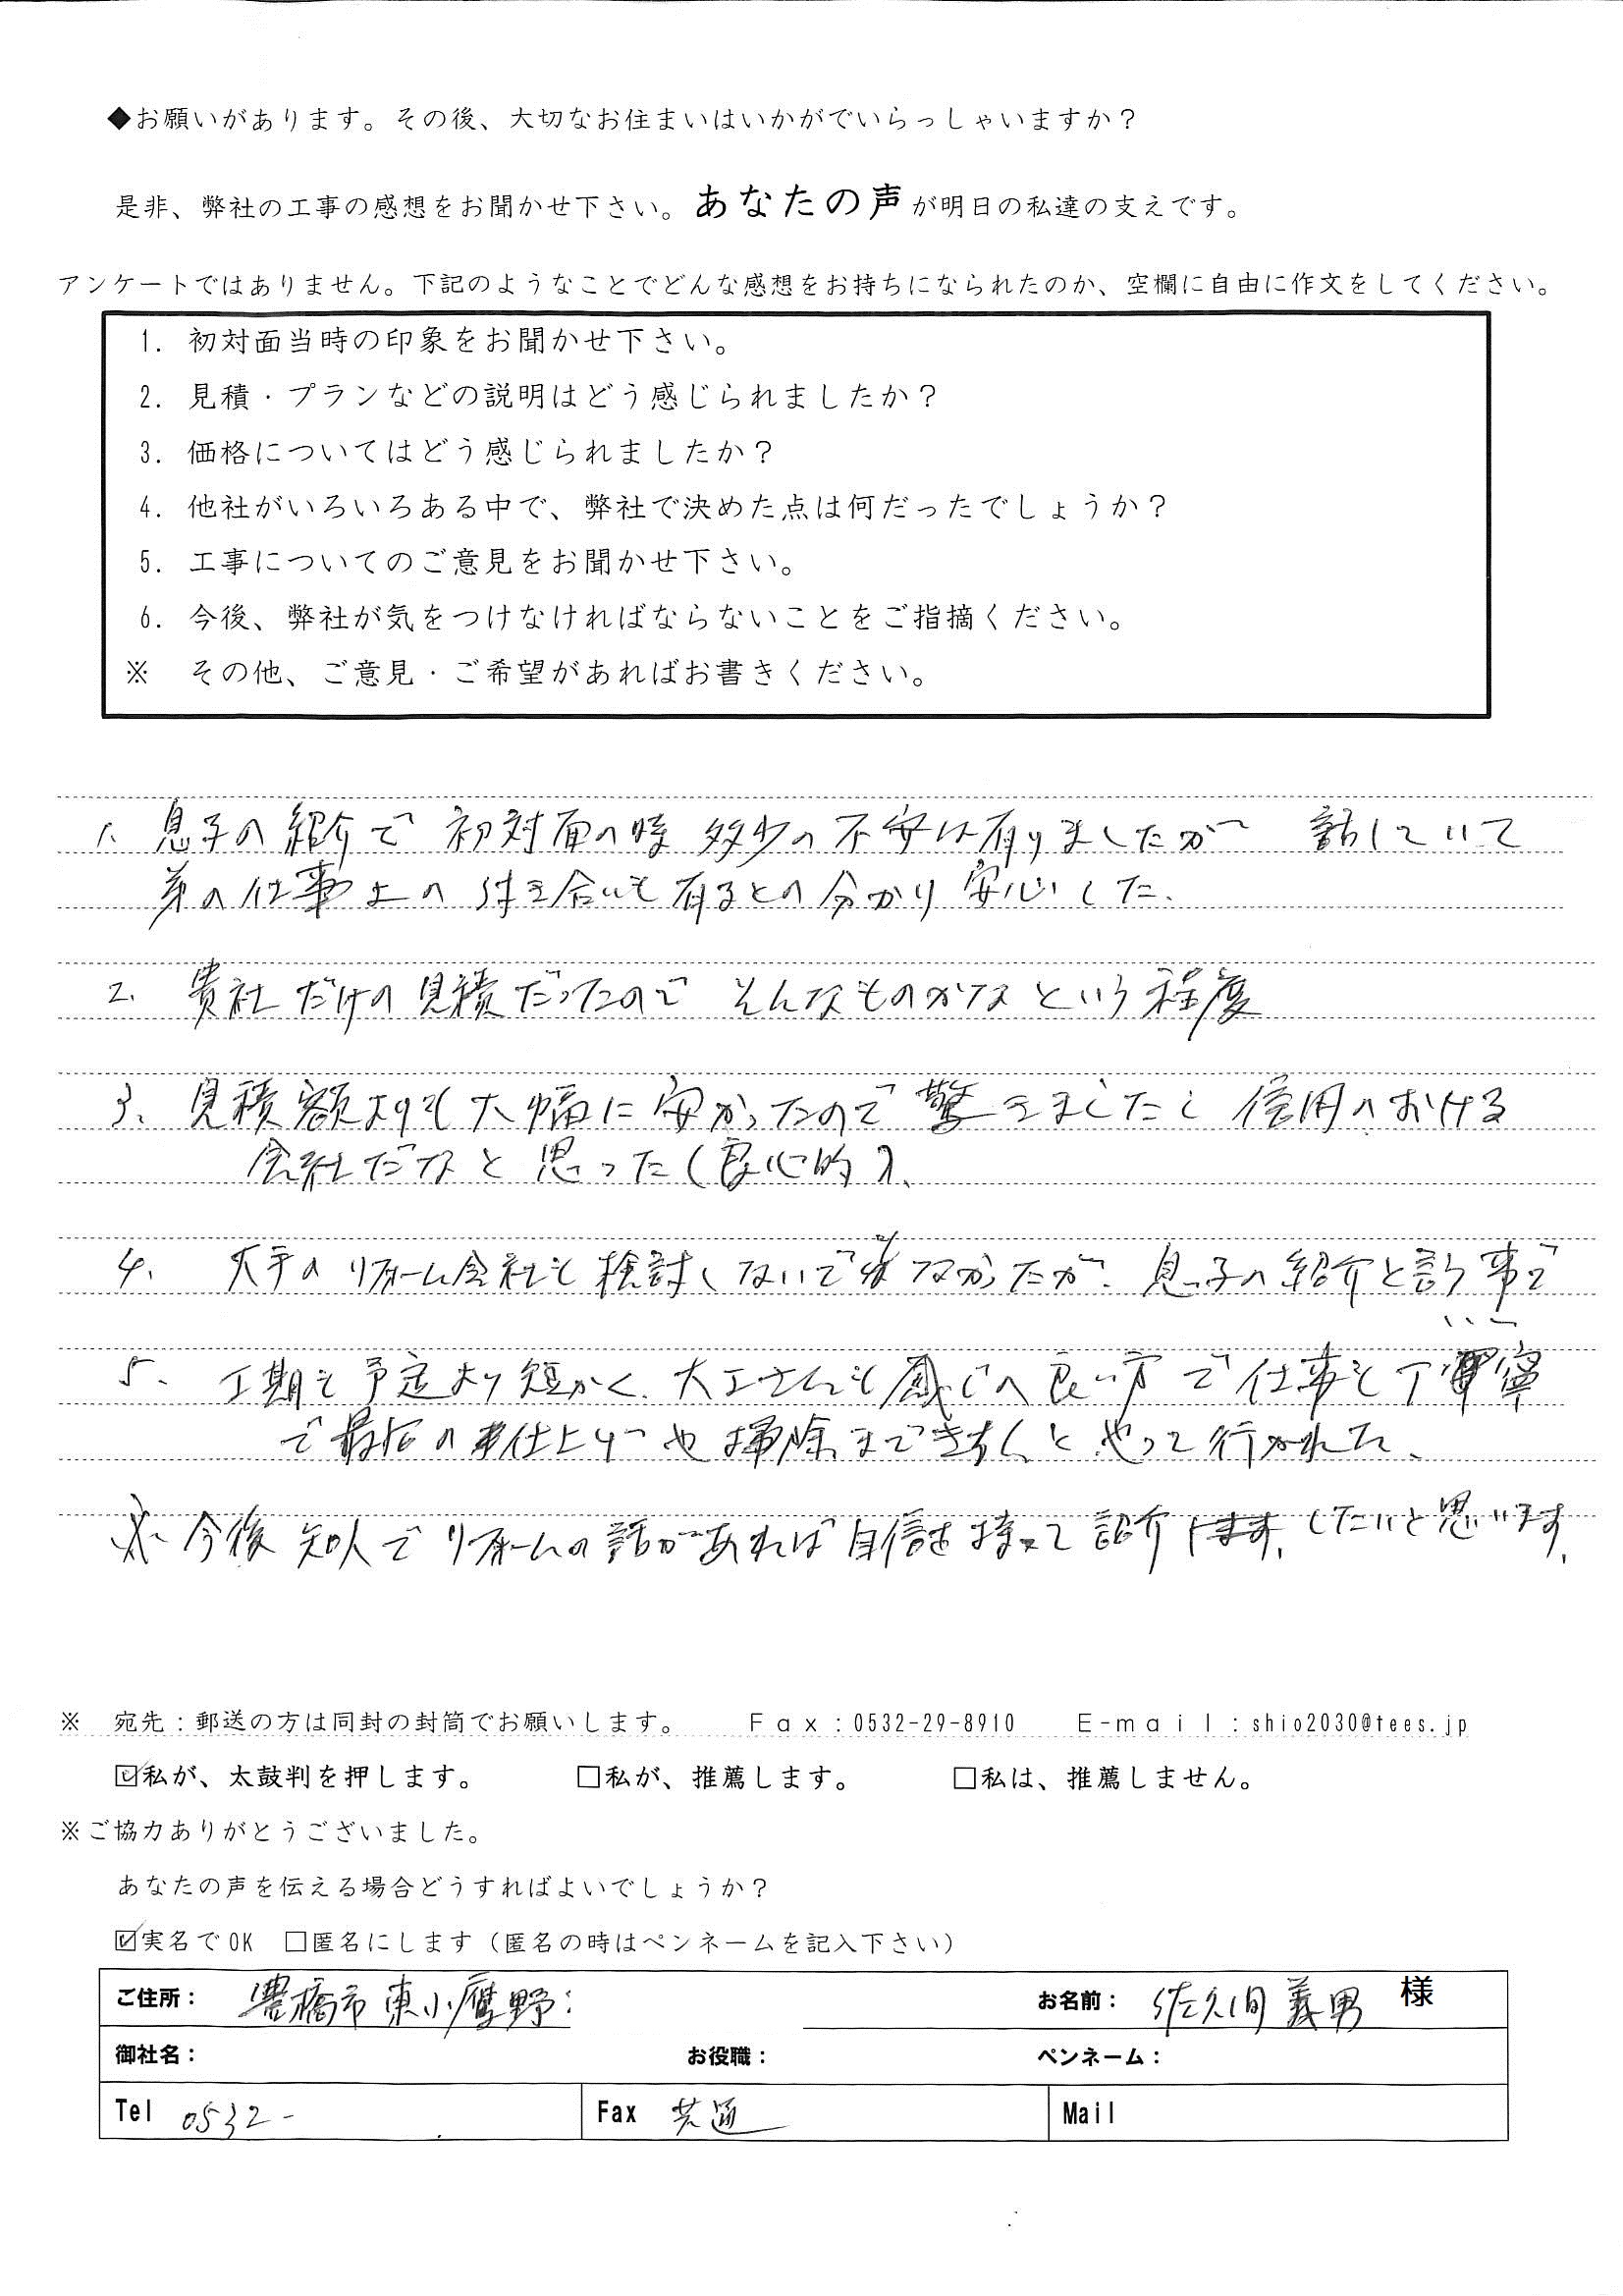 ◆お願いがあります。その後、大切なお住まいはいかがでいらっしゃいますか？
是非、弊社の工事の感想をお聞かせ下さい。あなたの声が明日の私達の支えです。
アンケートではありません。下記のようなことでどんな感想をお持ちになられたのか、空欄に自由に作文をしてください。
1. 初対面当時の印象をお聞かせ下さい。
2. 見積・プランなどの説明はどう感じられましたか？
3. 価格についてはどう感じられましたか？
4. 他社がいろいろある中で、弊社で決めた点は何だったでしょうか？
5. 工事についてのご意見をお聞かせ下さい。
6. 今後、弊社が気をつけなければならないことをご指摘ください。
※ その他、ご意見・ご希望があればお書きください。
1. 息子の紹介で 初対面の時 多少の不安は有りましたが 話していて
弟の仕事上の付き合いも有るとの分かり 安心した.
2. 貴社だけの見積だったので そんなものかなという程度
3. 見積額よりも大幅に安かったので驚きましたし 信用のおける
会社だなと思った(良心的).
4. 大手のリフォーム会社も検討しないではなかったが、息子の紹介と言う事で
5. 工期も予定より短かく、大工さんも感じの良い方で仕事も丁寧
で最后の仕上げや掃除まできちんとやって行かれた、
※ 今後 知人でリフォームの話があれば自信を持って紹介します. したいと思います.
※ 宛先：郵送の方は同封の封筒でお願いします。 Fax：0532-29-8910 E-mail：shio2030@tees.jp
☑私が、太鼓判を押します。 □私が、推薦します。 □私は、推薦しません。
※ご協力ありがとうございました。
あなたの声を伝える場合どうすればよいでしょうか？
☑実名でOK □匿名にします（匿名の時はペンネームを記入下さい）
ご住所： 豊橋市東小鷹野 お名前： 佐久間 義男 様
御社名： お役職： ペンネーム：
Tel 0532- Fax 共通 Mail